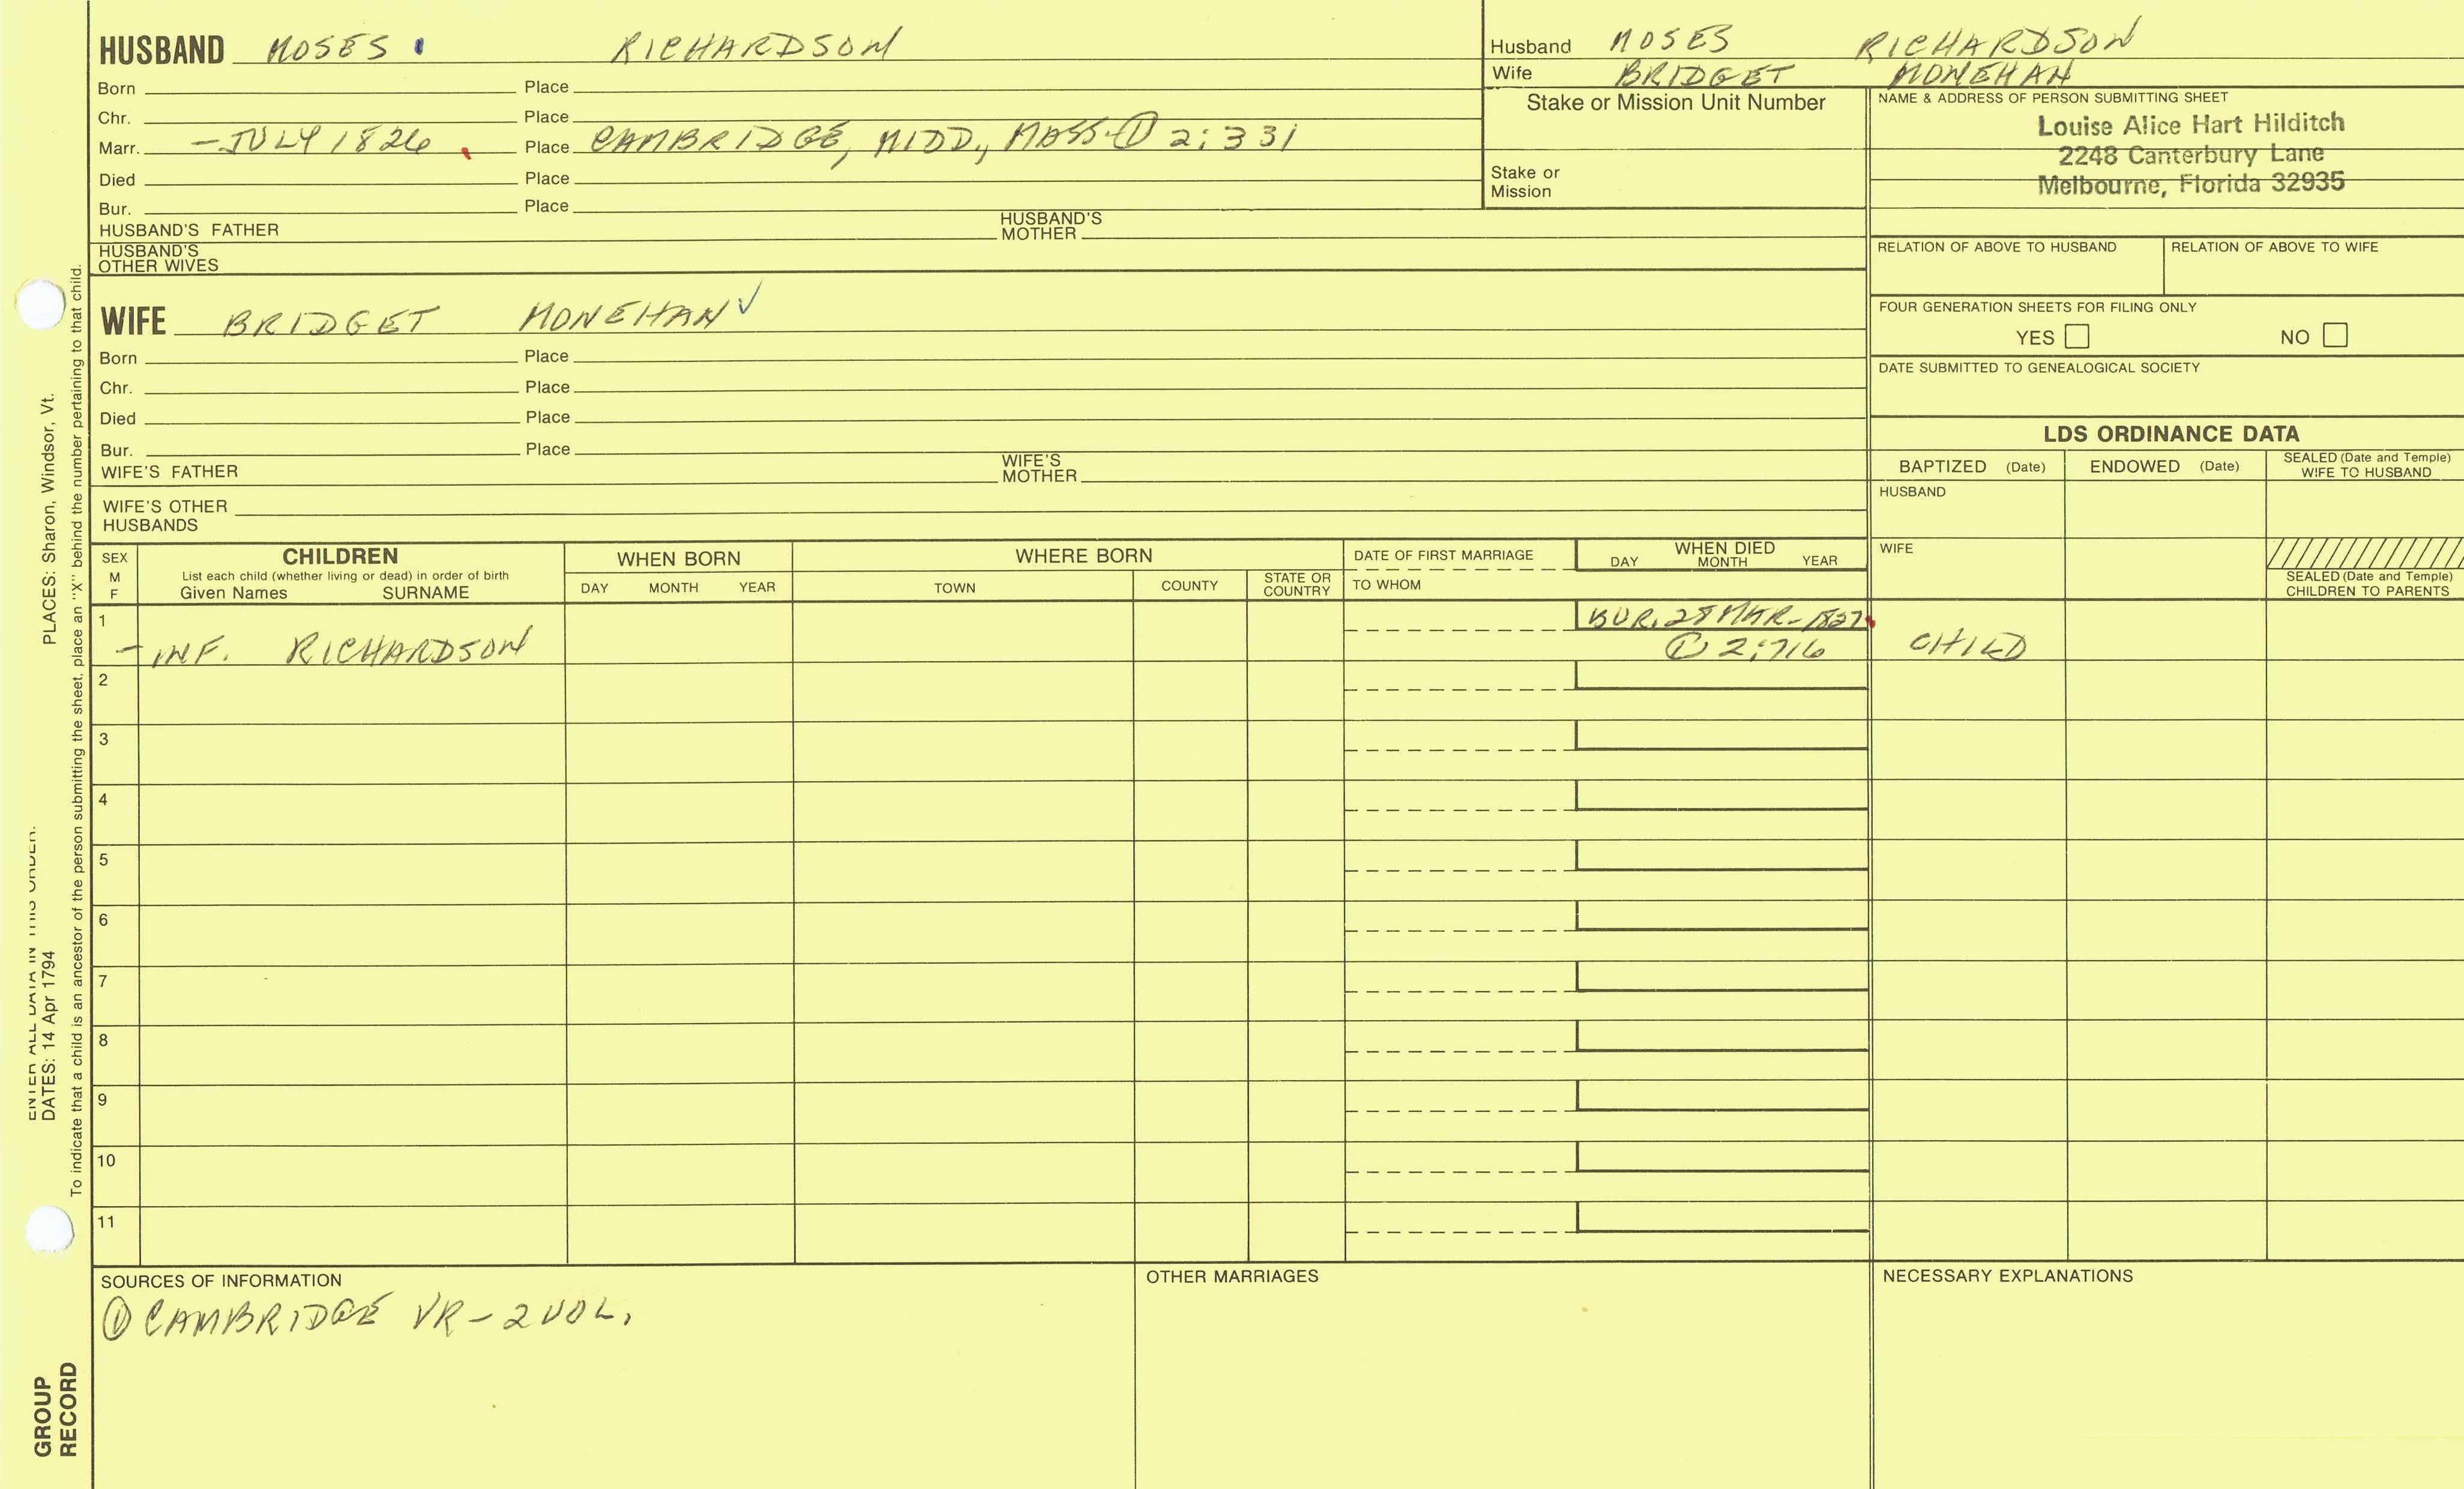 HUSBAND MOSES RICHARDSON
Born Place
Chr. Place
Marr. - JULY 1826 Place CAMBRIDGE, MIDD., MASS- ① 2:331
Died Place
Bur. Place
HUSBAND'S FATHER HUSBAND'S MOTHER
HUSBAND'S OTHER WIVES
Husband MOSES RICHARDSON
Wife BRIDGET MONEHAN
Stake or Mission Unit Number
Stake or Mission
NAME & ADDRESS OF PERSON SUBMITTING SHEET
Louise Alice Hart Hilditch
2248 Canterbury Lane
Melbourne, Florida 32935
RELATION OF ABOVE TO HUSBAND RELATION OF ABOVE TO WIFE
FOUR GENERATION SHEETS FOR FILING ONLY
YES NO
DATE SUBMITTED TO GENEALOGICAL SOCIETY
WIFE BRIDGET MONEHAN ✓
Born Place
Chr. Place
Died Place
Bur. Place
WIFE'S FATHER WIFE'S MOTHER
WIFE'S OTHER HUSBANDS
LDS ORDINANCE DATA
BAPTIZED (Date) ENDOWED (Date) SEALED (Date and Temple) WIFE TO HUSBAND
HUSBAND
WIFE
SEALED (Date and Temple) CHILDREN TO PARENTS
SEX M F
CHILDREN
List each child (whether living or dead) in order of birth
Given Names SURNAME
WHEN BORN
DAY MONTH YEAR
WHERE BORN
TOWN COUNTY STATE OR COUNTRY
DATE OF FIRST MARRIAGE
TO WHOM
WHEN DIED
DAY MONTH YEAR
1 BUR. 28 MAR- 1837
- INF. RICHARDSON ① 2:716 CHILD
2
3
4
5
6
7
8
9
10
11
SOURCES OF INFORMATION
① CAMBRIDGE VR - 2 VOL.
OTHER MARRIAGES
NECESSARY EXPLANATIONS
ENTER ALL DATA IN THIS ORDER:
DATES: 14 Apr 1794 PLACES: Sharon, Windsor, Vt.
To indicate that a child is an ancestor of the person submitting the sheet, place an "X" behind the number pertaining to that child.
GROUP
RECORD